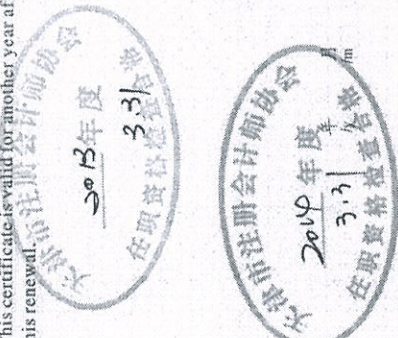 his certificate is valid for another year af
his renewal.
天津市注册会计师协会
2013年度
3.31
任职资格检查合格
天津市注册会计师协会
2014年度
3.31
任职资格检查合格
年
月
/m